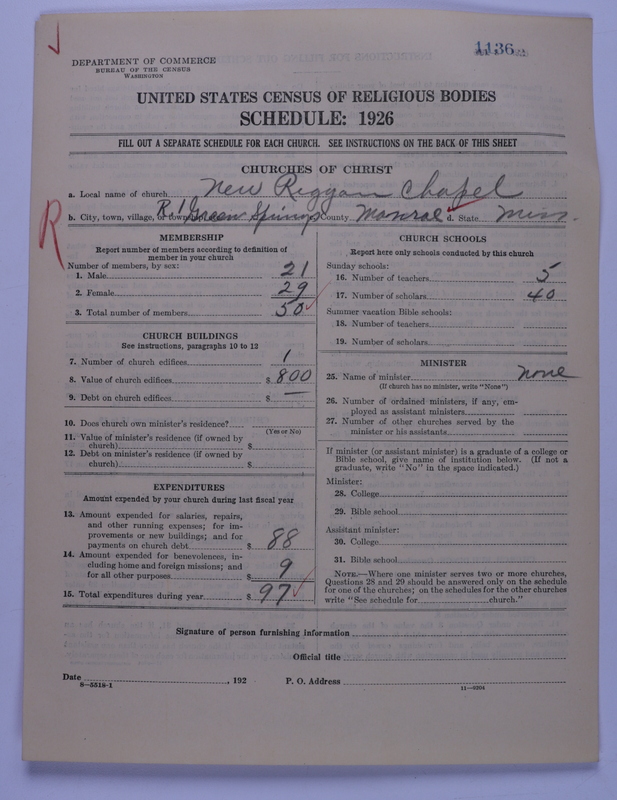 1136
DEPARTMENT OF COMMERCE
BUREAU OF THE CENSUS
WASHINGTON
UNITED STATES CENSUS OF RELIGIOUS BODIES
SCHEDULE: 1926
FILL OUT A SEPARATE SCHEDULE FOR EACH CHURCH. SEE INSTRUCTIONS ON THE BACK OF THIS SHEET
CHURCHES OF CHRIST
a. Local name of church New Riggan Chapel
b. City, town, village, or town R 1 Green Springs County Monroe d. State Miss.
R
MEMBERSHIP
Report number of members according to definition of
member in your church
Number of members, by sex:
1. Male 21
2. Female 29
3. Total number of members 50
CHURCH BUILDINGS
See instructions, paragraphs 10 to 12
7. Number of church edifices 1
8. Value of church edifices $ 800
9. Debt on church edifices $ —
10. Does church own minister's residence?
(Yes or No)
11. Value of minister's residence (if owned by
church) $
12. Debt on minister's residence (if owned by
church) $
EXPENDITURES
Amount expended by your church during last fiscal year
13. Amount expended for salaries, repairs,
and other running expenses; for im-
provements or new buildings; and for
payments on church debt $ 88
14. Amount expended for benevolences, in-
cluding home and foreign missions; and
for all other purposes $ 9
15. Total expenditures during year $ 97
CHURCH SCHOOLS
Report here only schools conducted by this church
Sunday schools:
16. Number of teachers 5
17. Number of scholars 40
Summer vacation Bible schools:
18. Number of teachers
19. Number of scholars
MINISTER
25. Name of minister none
(If church has no minister, write "None")
26. Number of ordained ministers, if any, em-
ployed as assistant ministers
27. Number of other churches served by the
minister or his assistants
If minister (or assistant minister) is a graduate of a college or
Bible school, give name of institution below. (If not a
graduate, write "No" in the space indicated.)
Minister:
28. College
29. Bible school
Assistant minister:
30. College
31. Bible school
NOTE.—Where one minister serves two or more churches,
Questions 28 and 29 should be answered only on the schedule
for one of the churches; on the schedules for the other churches
write "See schedule for church."
Signature of person furnishing information
Official title
Date , 192 P. O. Address
8—5518-1 11—9204